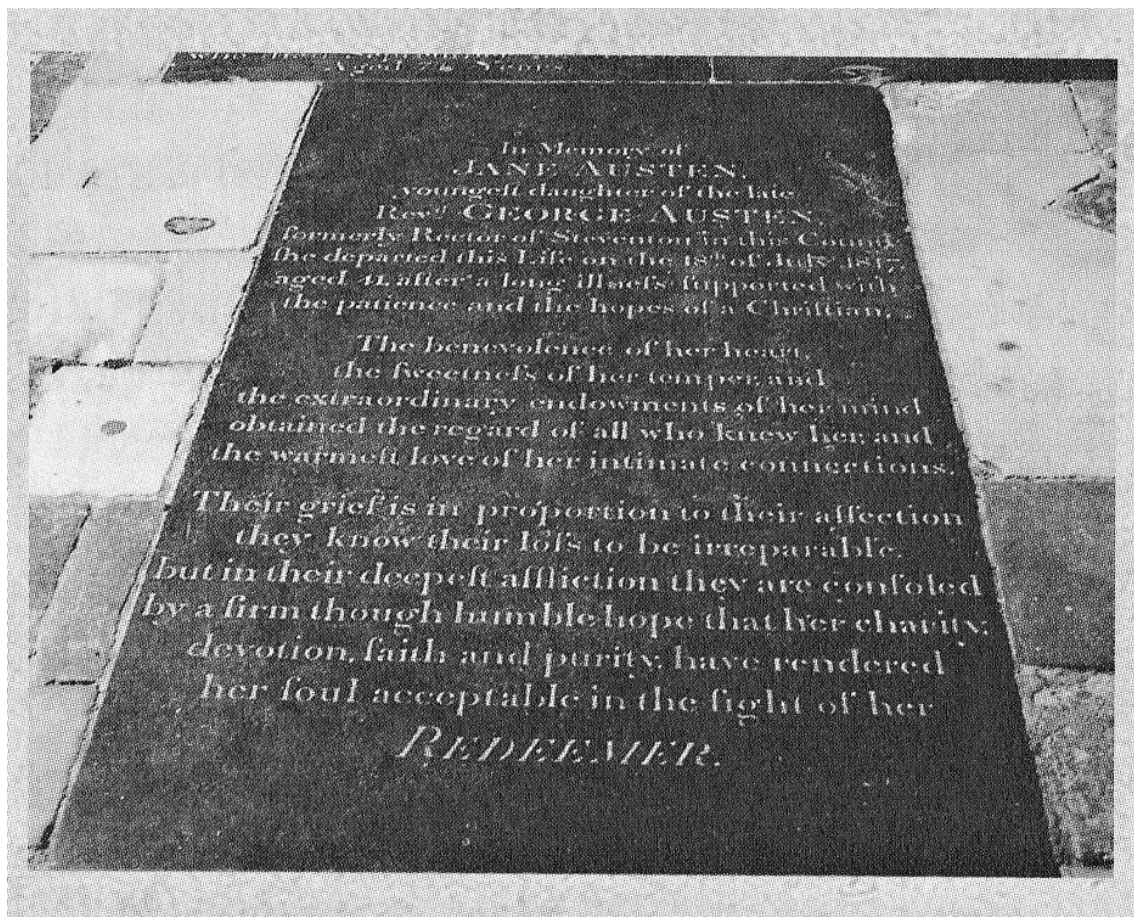 Aged 74 Years
In Memory of
JANE AUSTEN,
youngeſt daughter of the late
Revd GEORGE AUSTEN,
formerly Rector of Steventon in this County
ſhe departed this Life on the 18th of July 1817,
aged 41, after a long illneſs ſupported with
the patience and the hopes of a Chriſtian.
The benevolence of her heart,
the ſweetneſs of her temper, and
the extraordinary endowments of her mind
obtained the regard of all who knew her, and
the warmeſt love of her intimate connections.
Their grief is in proportion to their affection
they know their loſs to be irreparable,
but in their deepeſt affliction they are conſoled
by a firm though humble hope that her charity,
devotion, faith and purity, have rendered
her ſoul acceptable in the ſight of her
REDEEMER.